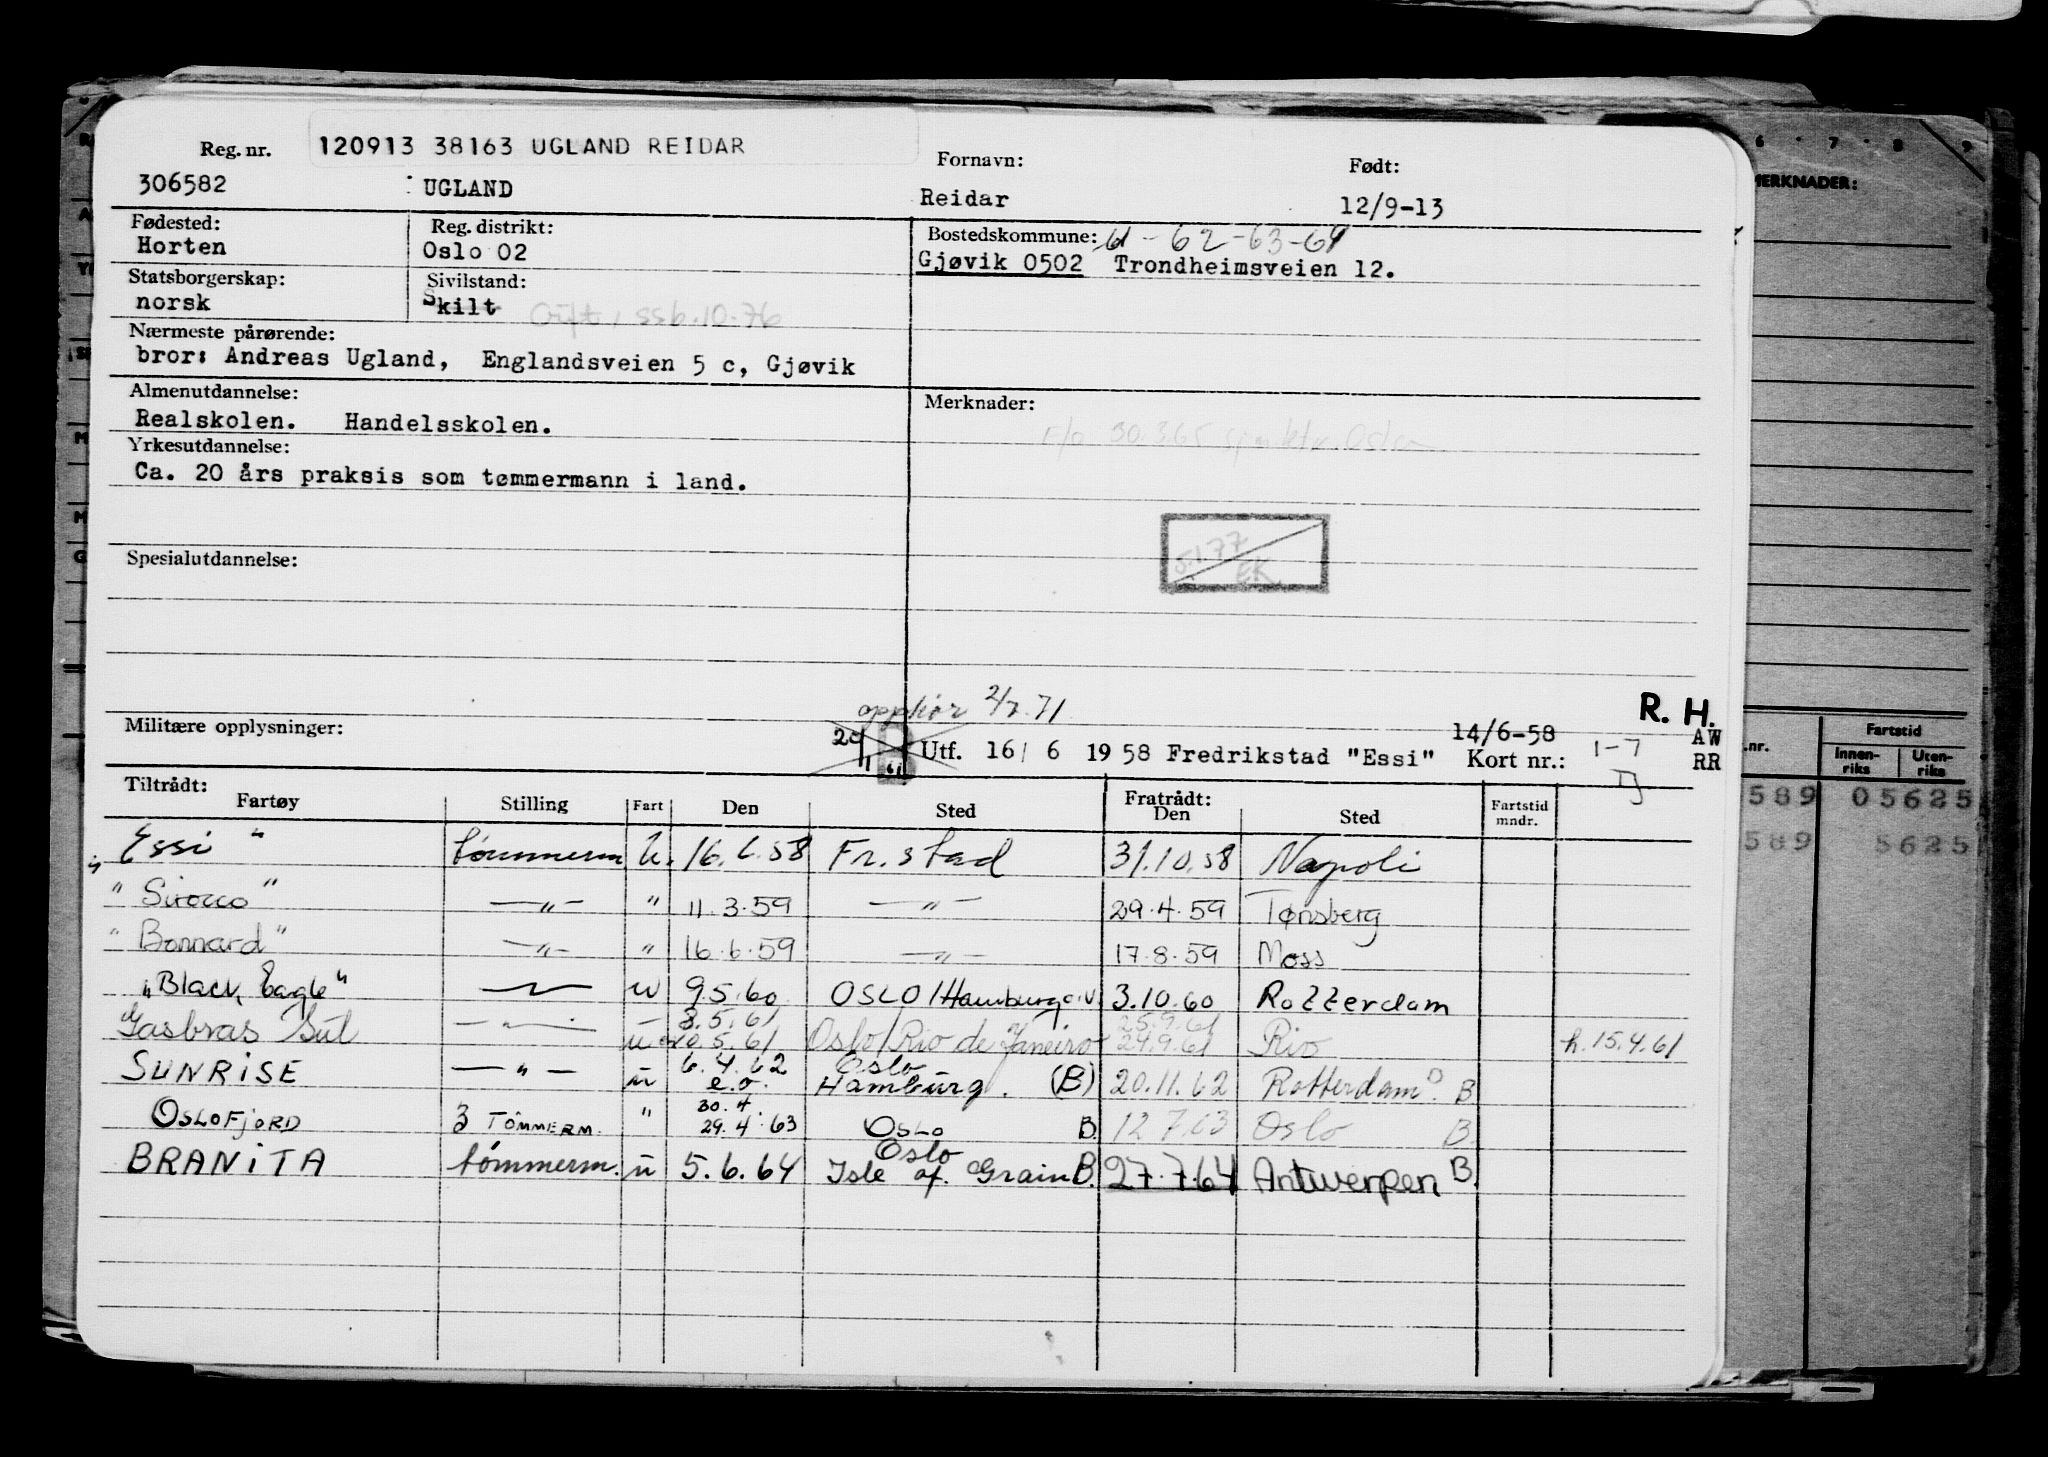 Reg. nr. 120913 38163 UGLAND REIDAR Fornavn: Født:
306582 UGLAND Reidar 12/9-13
Fødested: Reg. distrikt: Bostedskommune: 61 - 62 - 63 - 64
Horten Oslo 02 Gjøvik 0502 Trondheimsveien 12.
Statsborgerskap: Sivilstand:
norsk Skilt Gift, ssb. 10.76
Nærmeste pårørende:
bror: Andreas Ugland, Englandsveien 5 c, Gjøvik
Almenutdannelse: Merknader:
Realskolen. Handelsskolen.
Yrkesutdannelse:
Ca. 20 års praksis som tømmermann i land.
5.1.77
EK
Spesialutdannelse:
opphør 2/7.71
R. H.
Militære opplysninger: Utf. 16/ 6 1958 Fredrikstad "Essi" 14/6-58 Kort nr.: 1-7 AW
RR
Tiltrådt: Fartøy Stilling Fart Den Sted Fratrådt: Den Sted Fartstid mndr.
"Essi" tømmerm. U. 16.6.58 Fr.stad 31.10.58 Napoli
"Sirocco" —"— " 11.3.59 —"— 29.4.59 Tønsberg
"Bonnard" —"— " 16.6.59 —"— 17.8.59 Moss
"Black Eagle" u 9.5.60 OSLO/Hamburg 3.10.60 Rotterdam
8.5.61 25.9.61
Gasbras Sul —"— u 10.5.61 Oslo/Rio de Janeiro 24.9.61 Rio h. 15.4.61
6.4.62 Oslo
SUNRISE —"— u e.o. Hamburg. (B) 20.11.62 Rotterdam. B
30.4.
OSLOFJORD 3 TØMMERM. " 29.4.63 OSLO B. 12.7.63 Oslo B.
Oslo
BRANITA tømmerm. u 5.6.64 Isle of Grain B. 27.7.64 Antwerpen B.
6 7 8 9
MERKNADER:
nr. Fartstid
Innen-riks Uten-riks
589 05625
589 5625